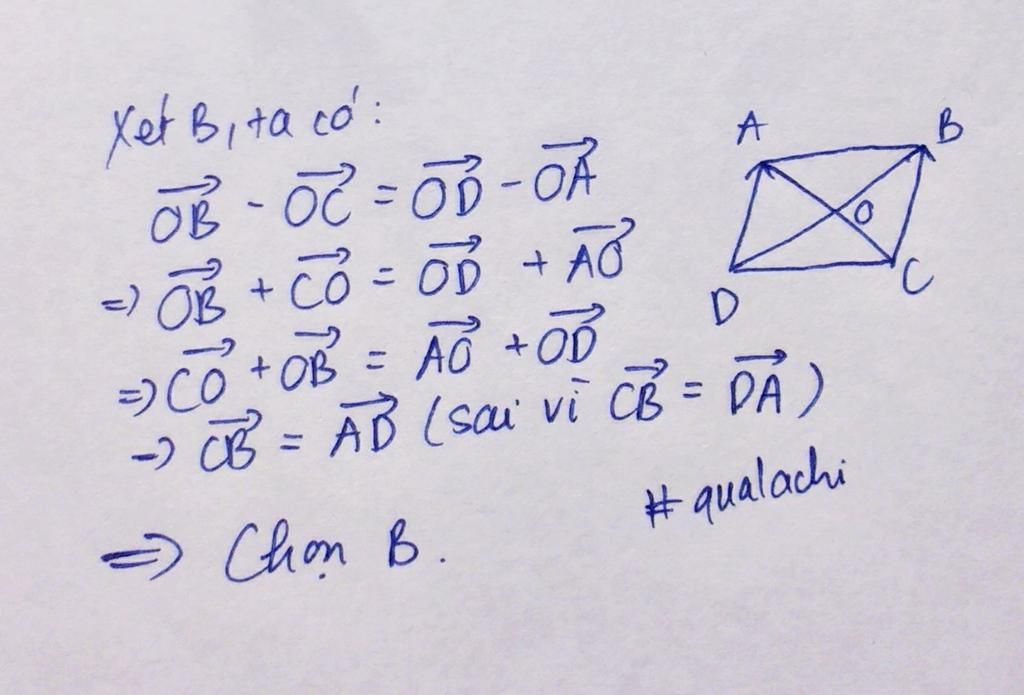 Xét B, ta có:
$\overrightarrow{OB} - \overrightarrow{OC} = \overrightarrow{OD} - \overrightarrow{OA}$
=) $\overrightarrow{OB} + \overrightarrow{CO} = \overrightarrow{OD} + \overrightarrow{AO}$
=) $\overrightarrow{CO} + \overrightarrow{OB} = \overrightarrow{AO} + \overrightarrow{OD}$
-) $\overrightarrow{CB} = \overrightarrow{AD}$ (sai vì $\overrightarrow{CB} = \overrightarrow{DA}$)
=) Chọn B.
#qualachi
A B
O
D C